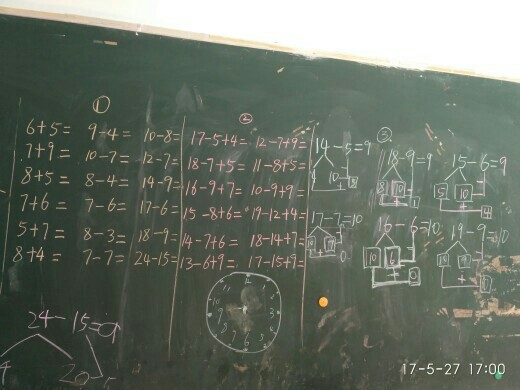 ①
6+5= 9-4= 10-8=
7+9= 10-7= 12-7=
8+5= 8-4= 14-9=
7+6= 7-6= 17-6=
5+7= 8-3= 18-9=
8+4= 7-7= 24-15=
24-15=9
②
17-5+4= 12-7+9=
18-7+5= 11-8+5=
16-9+7= 10-9+9=
15-8+6= 19-12+4=
14-7+6= 18-14+7=
13-6+9= 17-15+9=
③
14-5=9 18-9=9 15-6=9
17-7=10 16-6=10 19-9=10
17-5-27 17:00